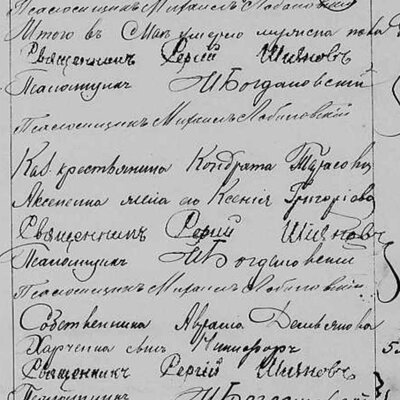 Псаломщикъ Михаилъ Лобановскій
Итого въ Маѣ умерло мужска пола
Священникъ Сергій Шияновъ
Псаломщикъ Н Богдановскій
Псаломщикъ Михаилъ Лобановскій
Каз. крестьянина Кондрата Тарасовича
жена его Ксенія Григоріева
Священникъ Сергій Шияновъ
Псаломщикъ Н Богдановскій
Псаломщикъ Михаилъ Лобановскій
Собственника Аврама Демьянова
Харченка сынъ Никифоръ
Священникъ Сергій Шияновъ
Псаломщикъ Н Богдановскій